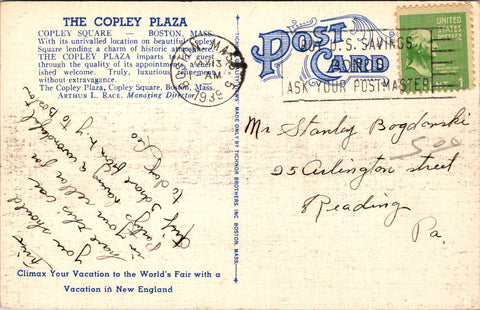 THE COPLEY PLAZA
COPLEY SQUARE — BOSTON, MASS.
With its unrivalled location on beautiful Copley
Square lending a charm of historic atmosphere,
THE COPLEY PLAZA imparts to its guest
through the quality of its appointments a cher-
ished welcome. Truly, luxurious
without extravagance.
The Copley Plaza, Copley Square, Boston, Mass.
ARTHUR L. RACE, Managing Director
you should
have this car
in your
Party having a wonderful
drove from N.Y. to Boston
to day
Leo
Climax Your Vacation to the World's Fair with a
Vacation in New England
MADE ONLY BY TICHNOR BROTHERS, INC. BOSTON, MASS.
BOSTON, MASS.
13
AM
1939
POST
CARD
BUY U.S. SAVINGS
BONDS
ASK YOUR POSTMASTER
UNITED
STATES
Mr Stanley Bogdanski
500
25 Arlington street
Reading
Pa.